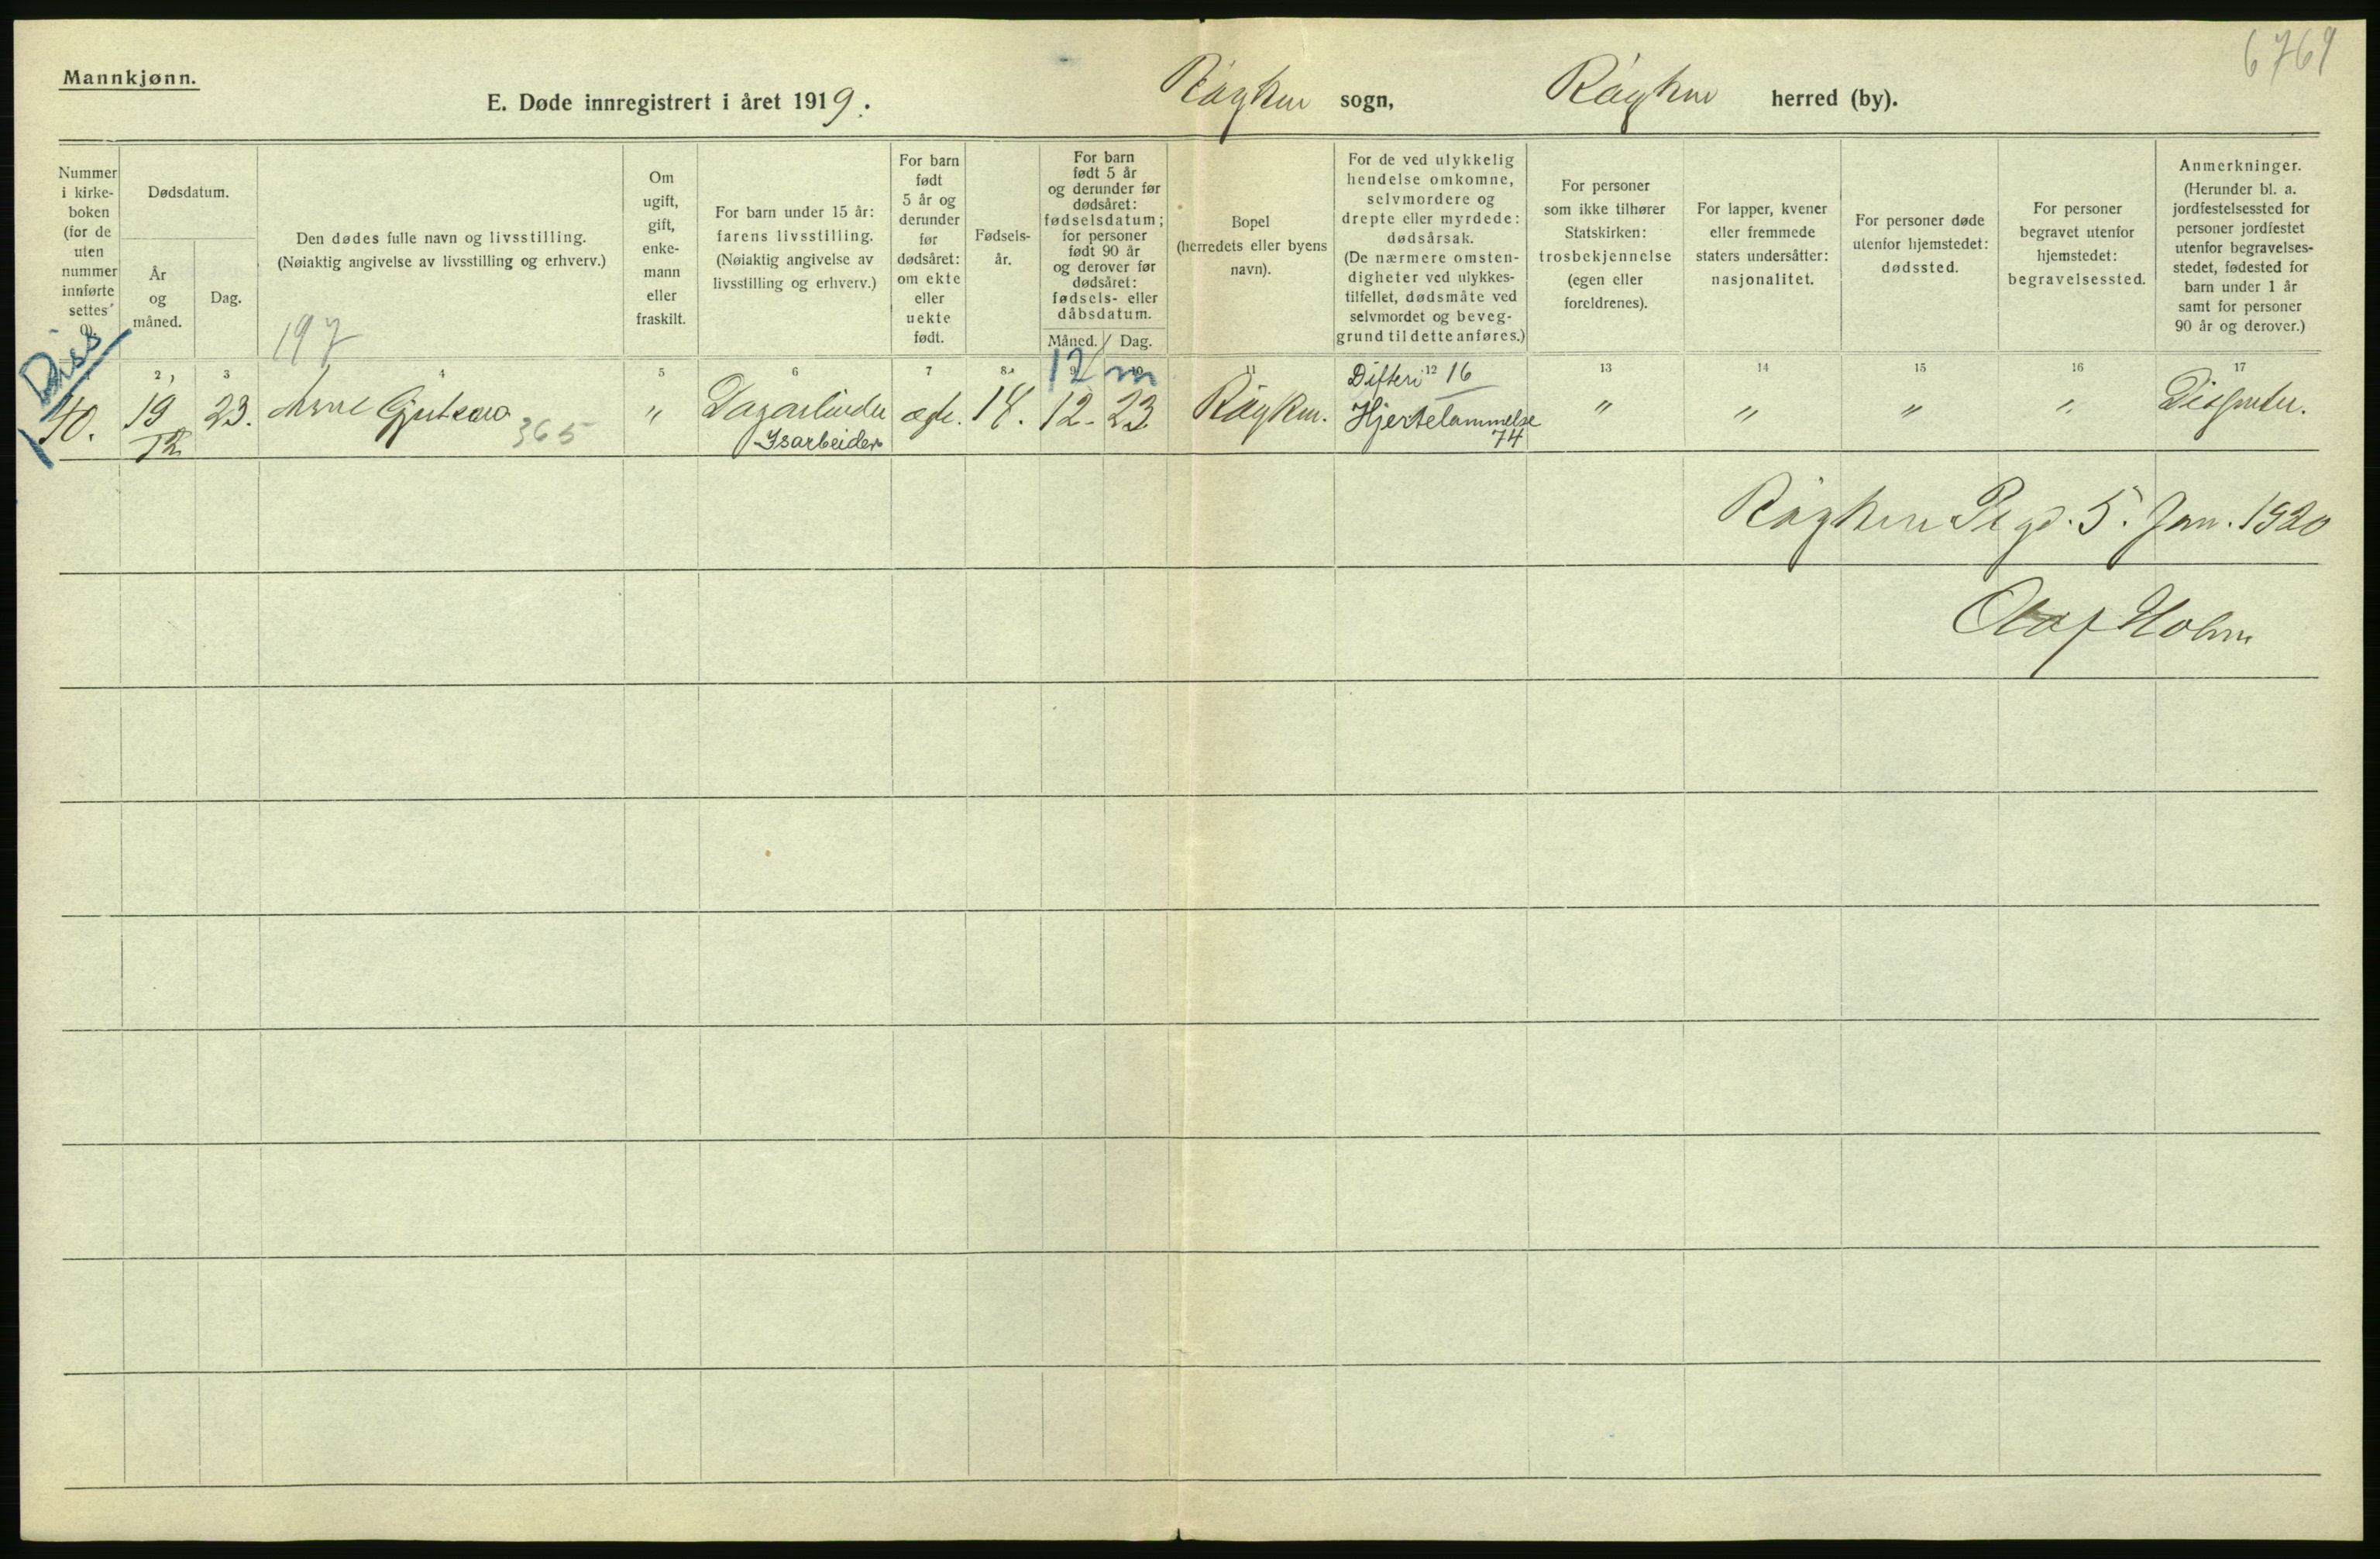 6769
Mannkjønn.
E. Døde innregistrert i året 1919. Røyken sogn, Røyken herred (by).
Nummer
i kirke-
boken
(for de
uten
nummer
innførte
settes
0).
Dødsdatum.
År
og
måned.
Dag.
Den dødes fulle navn og livsstilling.
(Nøiaktig angivelse av livsstilling og erhverv.)
197
Om
ugift,
gift,
enke-
mann
eller
fraskilt.
For barn under 15 år:
farens livsstilling.
(Nøiaktig angivelse av
livsstilling og erhverv.)
For barn
født
5 år og
derunder
før
dødsåret:
om ekte
eller
uekte
født.
Fødsels-
år.
For barn
født 5 år
og derunder før
dødsåret:
fødselsdatum;
for personer
født 90 år
og derover før
dødsåret:
fødsels- eller
dåbsdatum.
Måned. Dag.
Bopel
(herredets eller byens
navn).
For de ved ulykkelig
hendelse omkomne,
selvmordere og
drepte eller myrdede:
dødsårsak.
(De nærmere omsten-
digheter ved ulykkes-
tilfellet, dødsmåte ved
selvmordet og beveg-
grund til dette anføres.)
For personer
som ikke tilhører
Statskirken:
trosbekjennelse
(egen eller
foreldrenes).
For lapper, kvener
eller fremmede
staters undersåtter:
nasjonalitet.
For personer døde
utenfor hjemstedet:
dødssted.
For personer
begravet utenfor
hjemstedet:
begravelsessted.
Anmerkninger.
(Herunder bl. a.
jordfestelsessted for
personer jordfestet
utenfor begravelses-
stedet, fødested for
barn under 1 år
samt for personer
90 år og derover.)
Diss
2 3 4 5 6 7 8 9 10 11 12 13 14 15 16 17
12 m
Difteri 16
10. 19 23. Arne 365 " Dagarbeider ægte. 18. 12. 23. Røyken. Hjertelammelse " " " " Dissenter.
12 Isarbeider 74
Røyken Pgd. 5. Jan. 1920
Olaf Holm